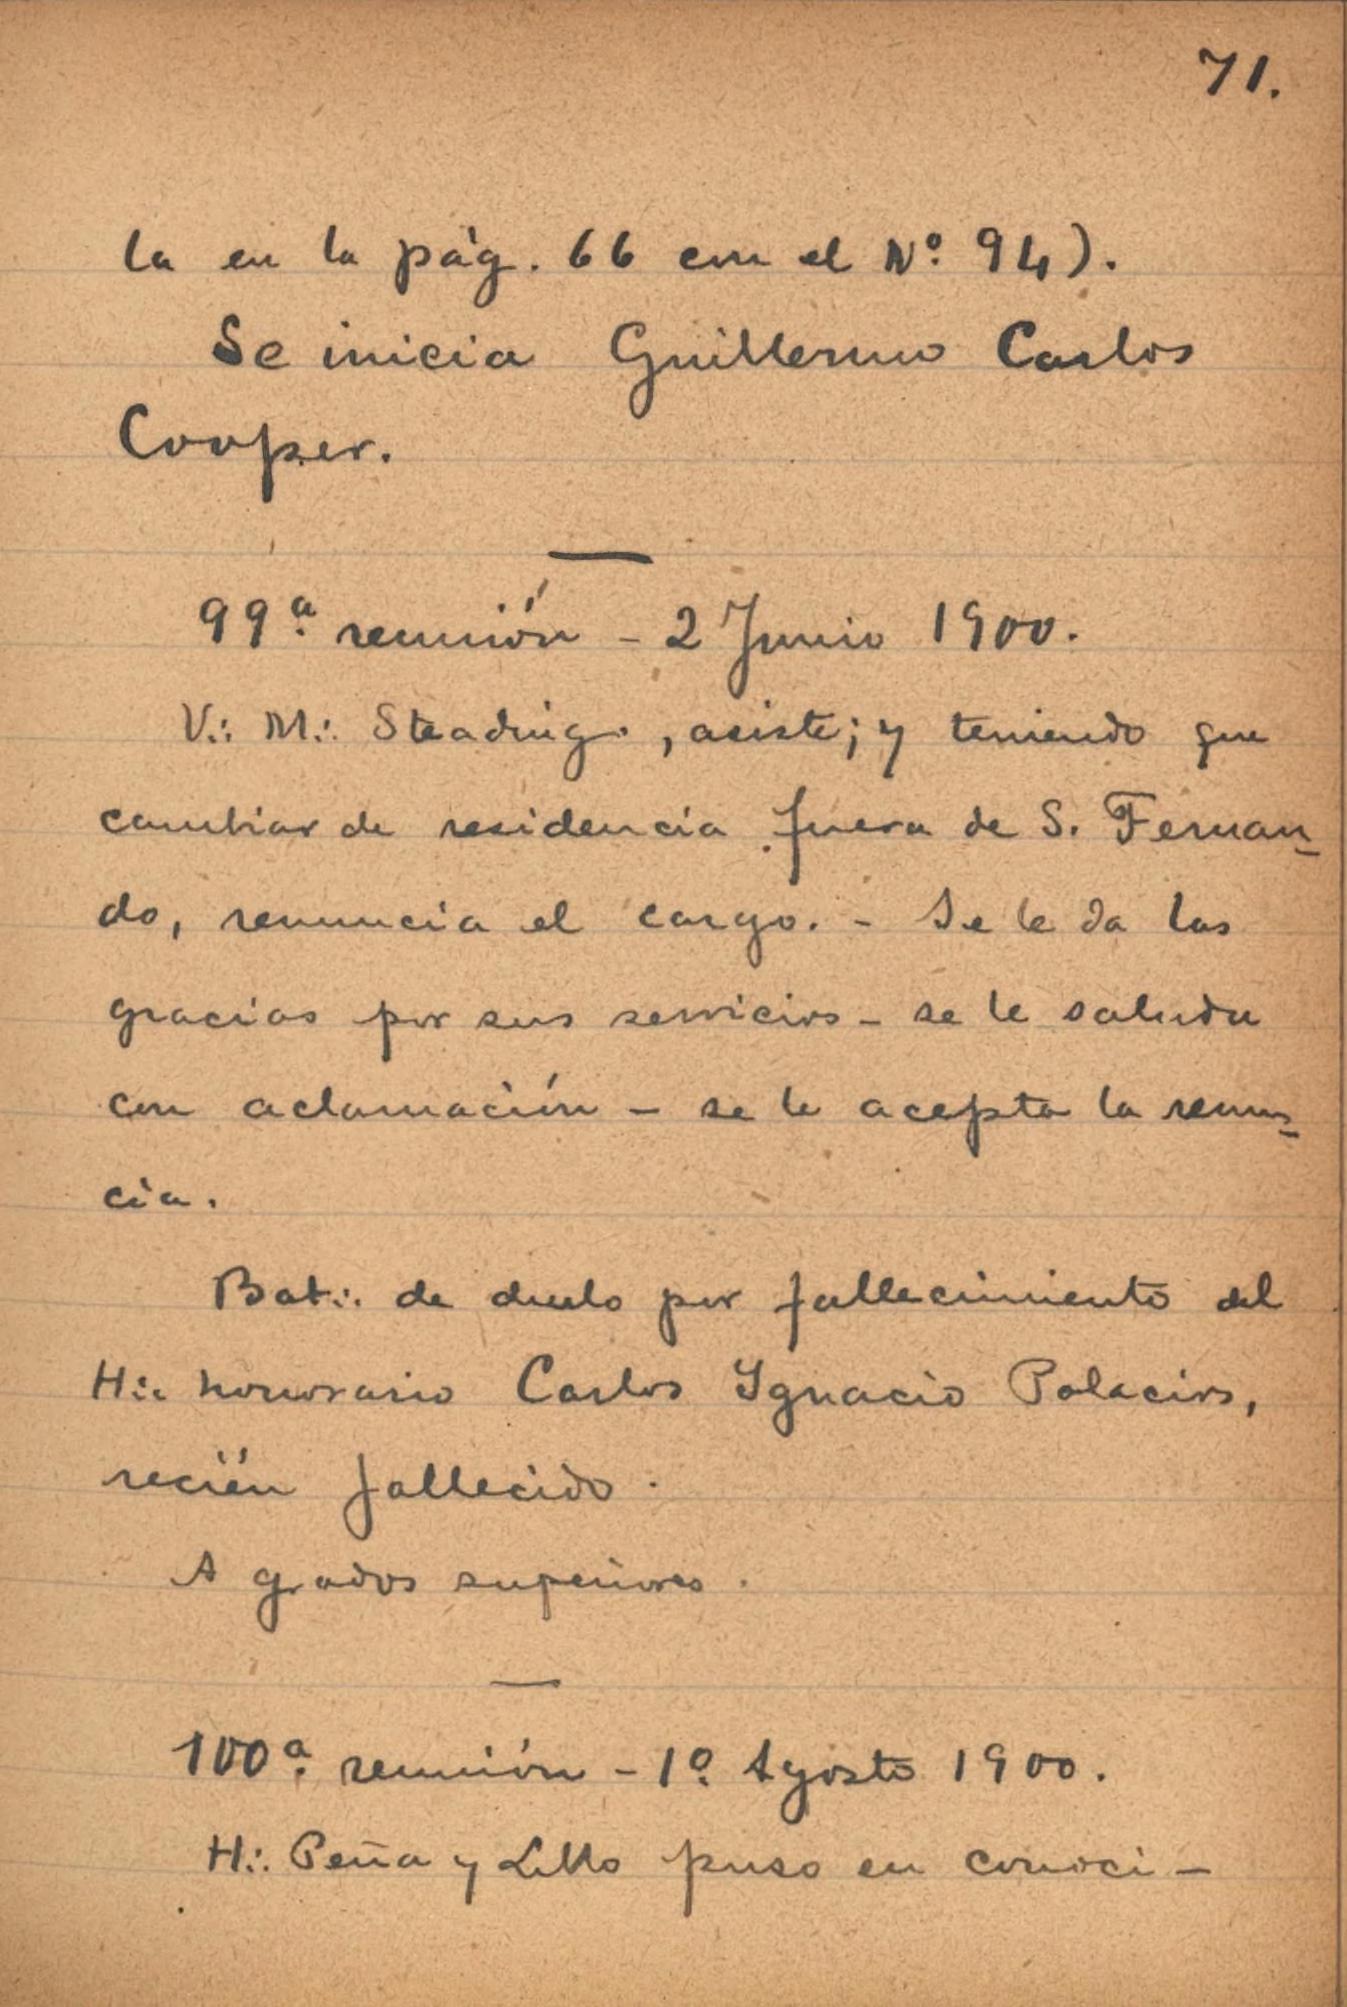 71.
la en la pág. 66 con el Nº 94).
Se inicia Guillermo Carlos
Cooper.
99ª reunión - 2 Junio 1900.
V∴ M∴ Steading, asiste; y teniendo que
cambiar de residencia fuera de S. Fernan-
do, renuncia el cargo. - Se le da las
gracias por sus servicios - se le saluda
con aclamación - se le acepta la renun-
cia.
Bat∴ de duelo por fallecimiento del
H∴ honorario Carlos Ignacio Palacios,
recién fallecido.
A grados superiores.
100ª reunión - 1º Agosto 1900.
H∴ Peña y Lillo puso en conoci-